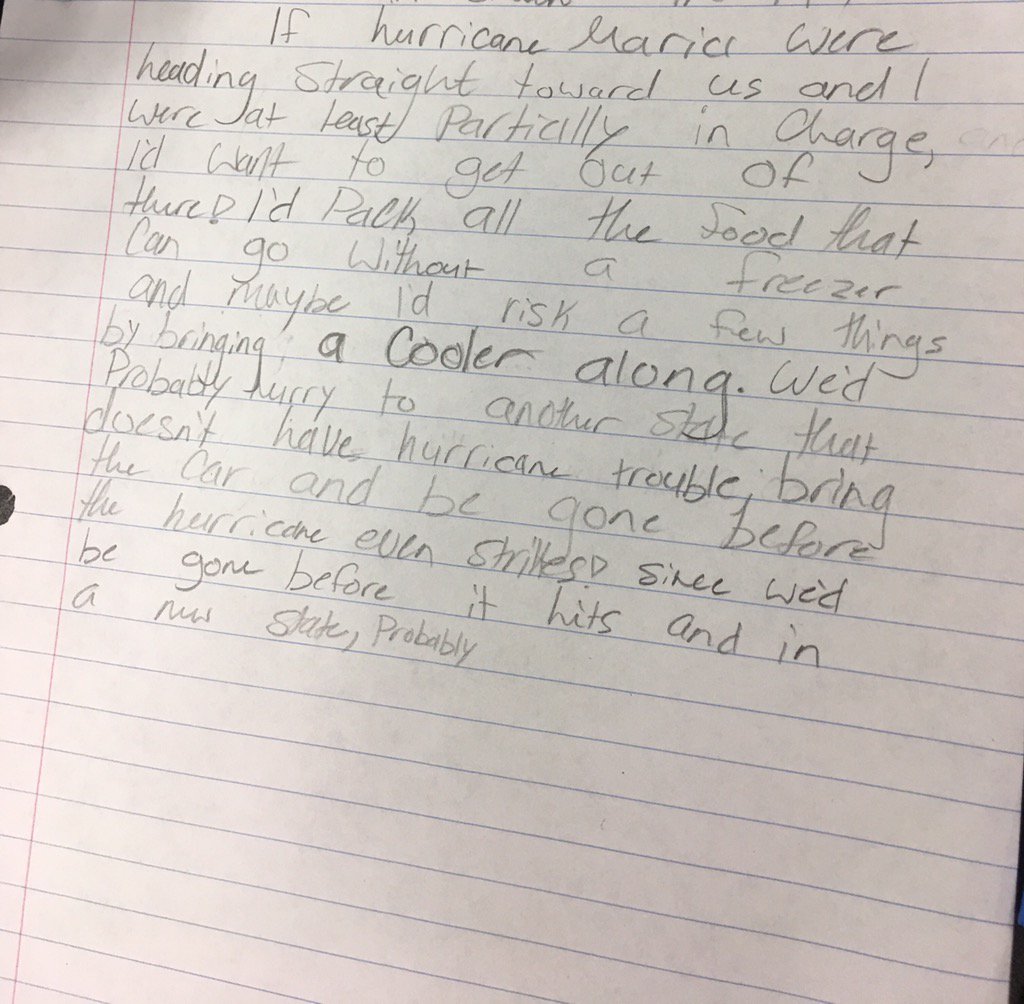 If hurricane Maria were
heading straight toward us and I
were at least partially in charge,
I'd want to get out of
there! I'd pack all the food that
can go without a freezer
and maybe I'd risk a few things
by bringing a cooler along. We'd
Probably hurry to another state that
doesn't have hurricane trouble, bring
the car and be gone before
the hurricane even strikes! Since we'd
be gone before it hits and in
a new state, Probably